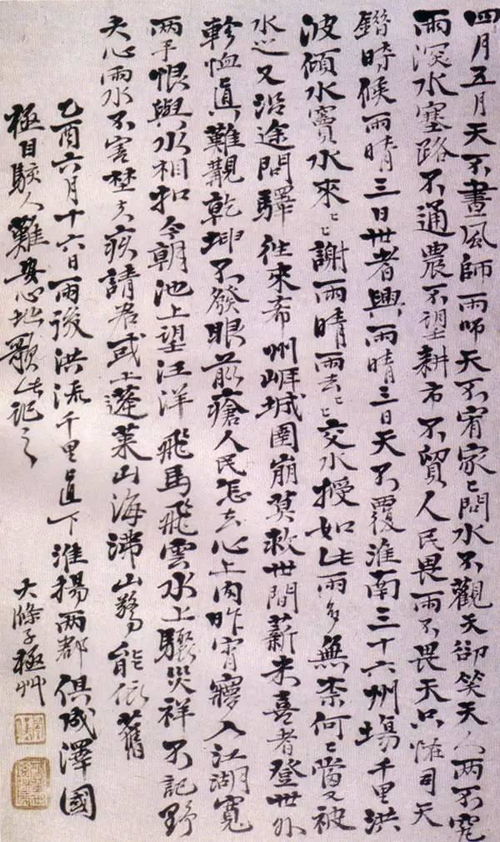 四月五月天不晝風師雨師天不宥家〻問水不觀天卻笑天公兩不究
雨深水塞路不通農不望耕市不貿人民畏雨不畏天只惟司天
時候雨晴三日世者興雨晴三日天不覆淮南三十六州場千里洪
波傾水竇水來〻〻謝雨晴雨去〻〻交水授如此雨多無柰何〻階又被
水 又沿途問驛往來希州崖城圍崩莫救世間薪米喜者登世外
軫恤真難觀乾坤不發眼前瘡人民怎去心上肉昨宵寢入江湖寬
兩手恨與水相扣今朝池上望汪洋飛馬飛雲水上驟災祥不記野
夫心雨水不害埜夫疾請君或上蓬萊山海沸山勢能依舊
乙酉六月十六日雨後洪流千里直下淮揚兩都俱成澤國
極目駭人難安心地歌此記之
大滌子極艸